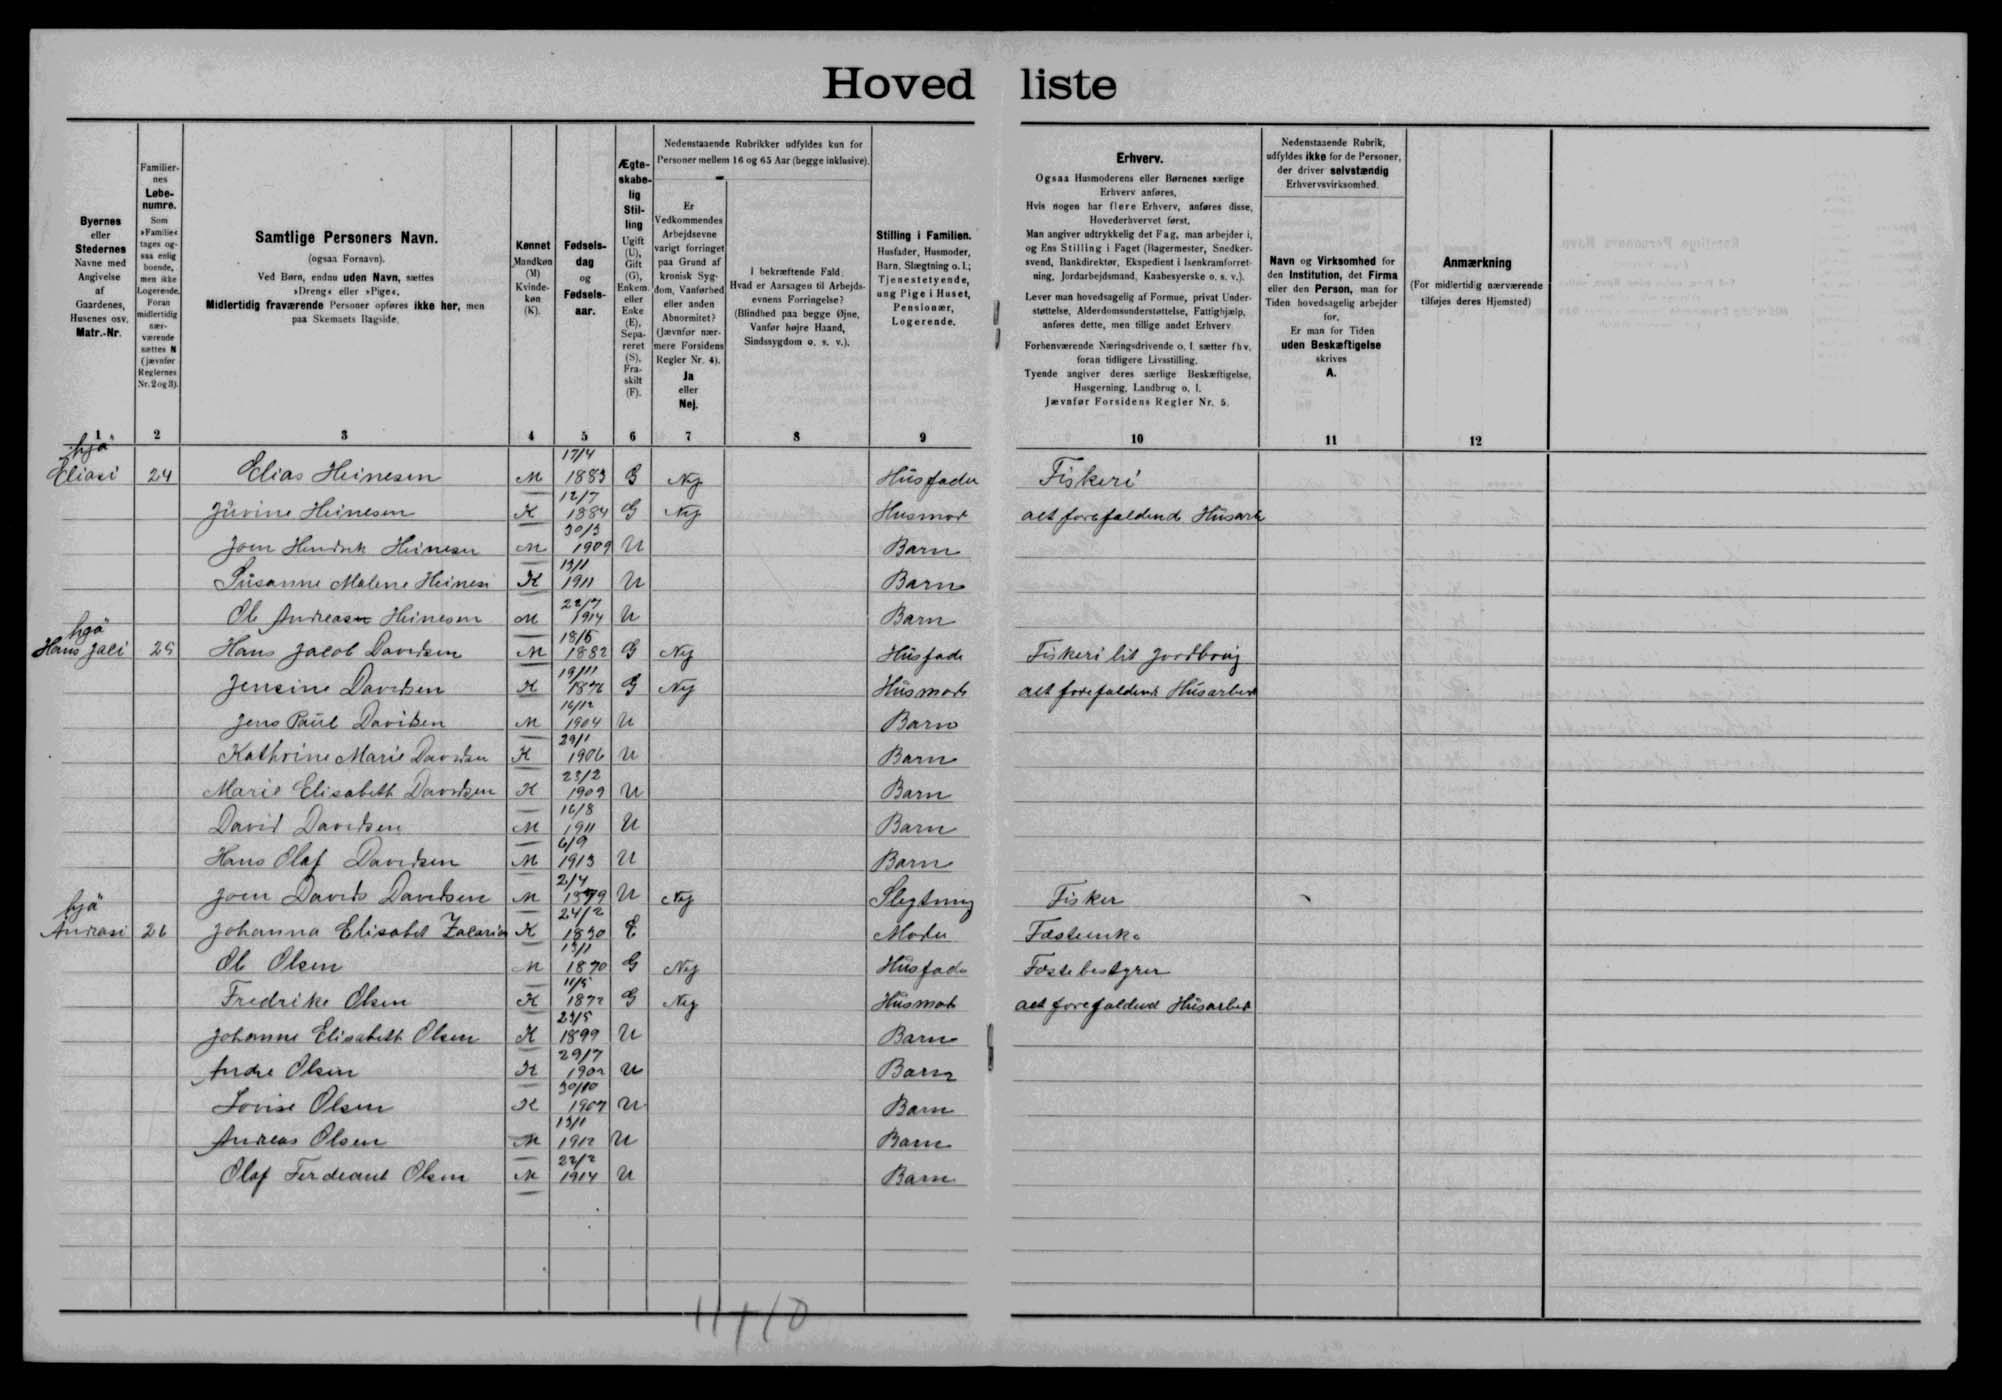 Hoved liste
Byernes
eller
Stedernes
Navne med
Angivelse
af
Gaardenes,
Husenes osv.
Matr.-Nr.
Familier-
nes
Løbe-
numre.
Som
»Familie«
tages og-
saa enlig
boende,
men ikke
Logerende.
Foran
midlertidig
nær-
værende
sættes N
(jævnfør
Reglernes
Nr. 2 og 3).
Samtlige Personers Navn.
(ogsaa Fornavn).
Ved Børn, endnu uden Navn, sættes
»Dreng« eller »Pige«.
Midlertidig fraværende Personer opføres ikke her, men
paa Skemaets Bagside.
Kønnet
Mandkøn
(M)
Kvinde-
køn
(K).
Fødsels-
dag
og
Fødsels-
aar.
Ægte-
skabe-
lig
Stil-
ling
Ugift
(U),
Gift
(G),
Enkem.
eller
Enke
(E),
Sepa-
reret
(S),
Fra-
skilt
(F).
Nedenstaaende Rubrikker udfyldes kun for
Personer mellem 16 og 65 Aar (begge inklusive).
Er
Vedkommendes
Arbejdsevne
varigt forringet
paa Grund af
kronisk Syg-
dom, Vanførhed
eller anden
Abnormitet?
(Jævnfør nær-
mere Forsidens
Regler Nr. 4).
Ja
eller
Nej.
I bekræftende Fald:
Hvad er Aarsagen til Arbejds-
evnens Forringelse?
(Blindhed paa begge Øjne,
Vanfør højre Haand,
Sindssygdom o. s. v.).
Stilling i Familien.
Husfader, Husmoder,
Barn, Slægtning o. l.;
Tjenestetyende,
ung Pige i Huset,
Pensionær,
Logerende.
Erhverv.
Ogsaa Husmoderens eller Børnenes særlige
Erhverv anføres.
Hvis nogen har flere Erhverv, anføres disse,
Hovederhvervet først.
Man angiver udtrykkelig det Fag, man arbejder i,
og Ens Stilling i Faget (Bagermester, Snedker-
svend, Bankdirektør, Ekspedient i Isenkramforret-
ning, Jordarbejdsmand, Kaabesyerske o. s. v.).
Lever man hovedsagelig af Formue, privat Under-
støttelse, Alderdomsunderstøttelse, Fattighjælp,
anføres dette, men tillige andet Erhverv.
Forhenværende Næringsdrivende o. l. sætter fhv.
foran tidligere Livsstilling.
Tyende angiver deres særlige Beskæftigelse,
Husgerning, Landbrug o. l.
Jævnfør Forsidens Regler Nr. 5.
Nedenstaaende Rubrik,
udfyldes ikke for de Personer,
der driver selvstændig
Erhvervsvirksomhed.
Navn og Virksomhed for
den Institution, det Firma
eller den Person, man for
Tiden hovedsagelig arbejder
for.
Er man for Tiden
uden Beskæftigelse
skrives
A.
Anmærkning
(For midlertidig nærværende
tilføjes deres Hjemsted)
1 2 3 4 5 6 7 8 9 10 11 12
hjá 17/4
Eliasi 24 Elias Heinesen M 1883 G Nej Husfader Fiskeri
12/7
Juvine Heinesen K 1884 G Nej Husmor alt forefaldende Husarb
30/3
Joen Hendrik Heinesen M 1909 U Barn
13/1
Susanne Malene Heinesi K 1911 U Barn
22/7
Ole Andreasen Heinesen M 1914 U Barn
hjá 18/5
Hans Jaci 25 Hans Jacob Davidsen M 1882 G Nej Husfade Fiskeri lit Jordbrug
19/11
Jensine Davidsen K 1876 G Nej Husmode alt forefaldende Husarbeid
16/12
Jens Paul Davidsen M 1904 U Barn
29/1
Kathrine Marie Davidsen K 1906 U Barn
23/2
Marie Elisabeth Davidsen K 1909 U Barn
16/8
David Davidsen M 1911 U Barn
6/9
Hans Olaf Davidsen M 1913 U Barn
2/4
Joen Davids Davidsen M 1879 U Nej Slegtning Fisker
hjá 24/2
Andrasi 26 Johanna Elisabet Zacarias K 1830 E Moder Fæstenke
13/1
Ole Olsen M 1870 G Nej Husfade Fæstebestyrer
11/5
Fredrike Olsen K 1872 G Nej Husmod alt forefaldend Husarbed
23/5
Johanne Elisabeth Olsen K 1899 U Barn
29/7
Andre Olsen K 1902 U Barn
30/10
Lovise Olsen K 1907 U Barn
13/1
Andreas Olsen M 1912 U Barn
22/2
Olaf Ferdeant Olsen M 1914 U Barn
11+10